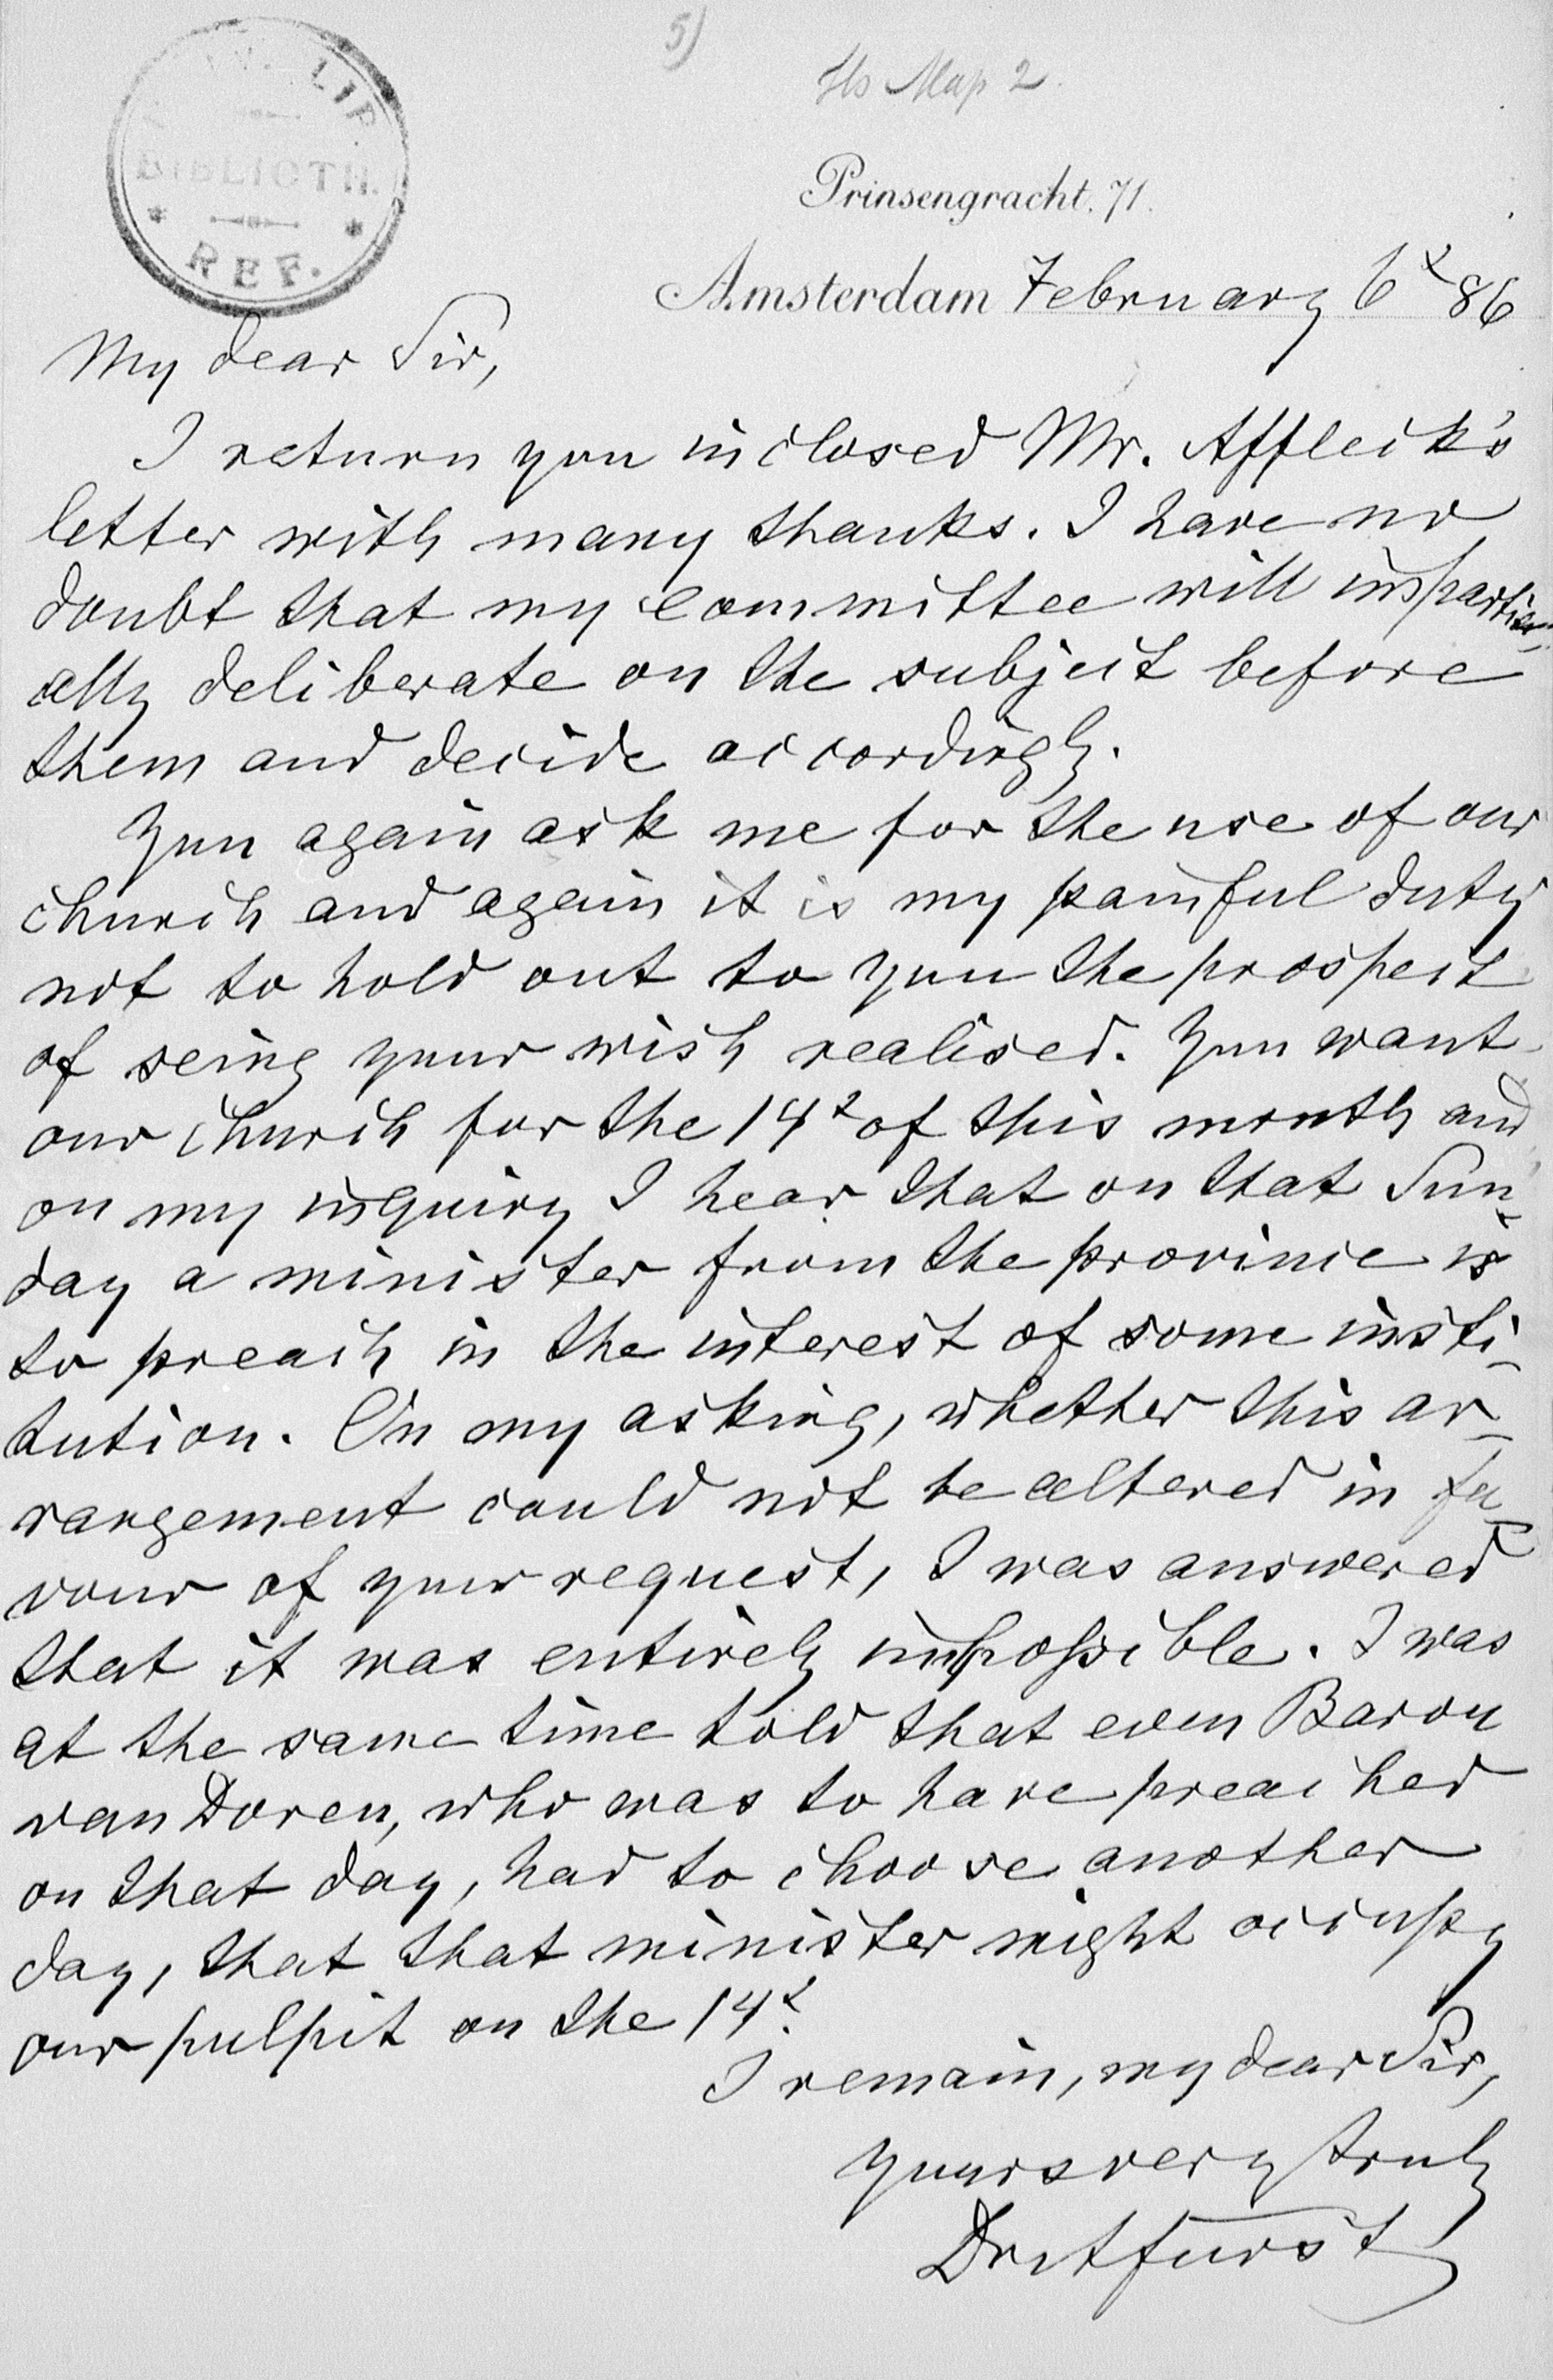 5)
Hs Map 2.
LIP.
BIBLIOTH.
REF.
Prinsengracht. 71.
Amsterdam February 6th 86
My dear Sir,
I return you inclosed Mr. Affleck's
letter with many thanks. I have no
doubt that my committee will imparti-
ally deliberate on the subject before
them and decide accordingly.
You again ask me for the use of our
church and again it is my painful duty
not to hold out to you the prospect
of seing your wish realised. You want
our church for the 14th of this month and
on my inquiry I hear that on that Sun-
day a minister from the province is
to preach in the interest of some insti-
tution. On my asking, whether this ar-
rangement could not be altered in fa-
vour of your request, I was answered
that it was entirely impossible. I was
at the same time told that even Baron
van Doren, who was to have preached
on that day, had to choose another
day, that that minister might occupy
our pulpit on the 14th.
I remain, my dear Sir,
yours very truly